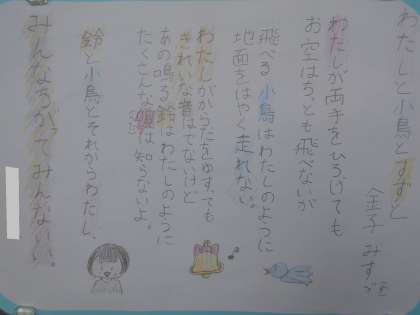 わたしと小鳥とすずと」
金子みすゞ
わたしが両手をひろげても
お空はちっとも飛べないが
飛べる小鳥はわたしのように
地面をはやく走れない。
わたしがからだをゆすっても
きれいな音はでないけど
あの鳴る鈴はわたしのように
たくさんな唄は知らないよ。
鈴と小鳥とそれからわたし、
みんなちがってみんないい。